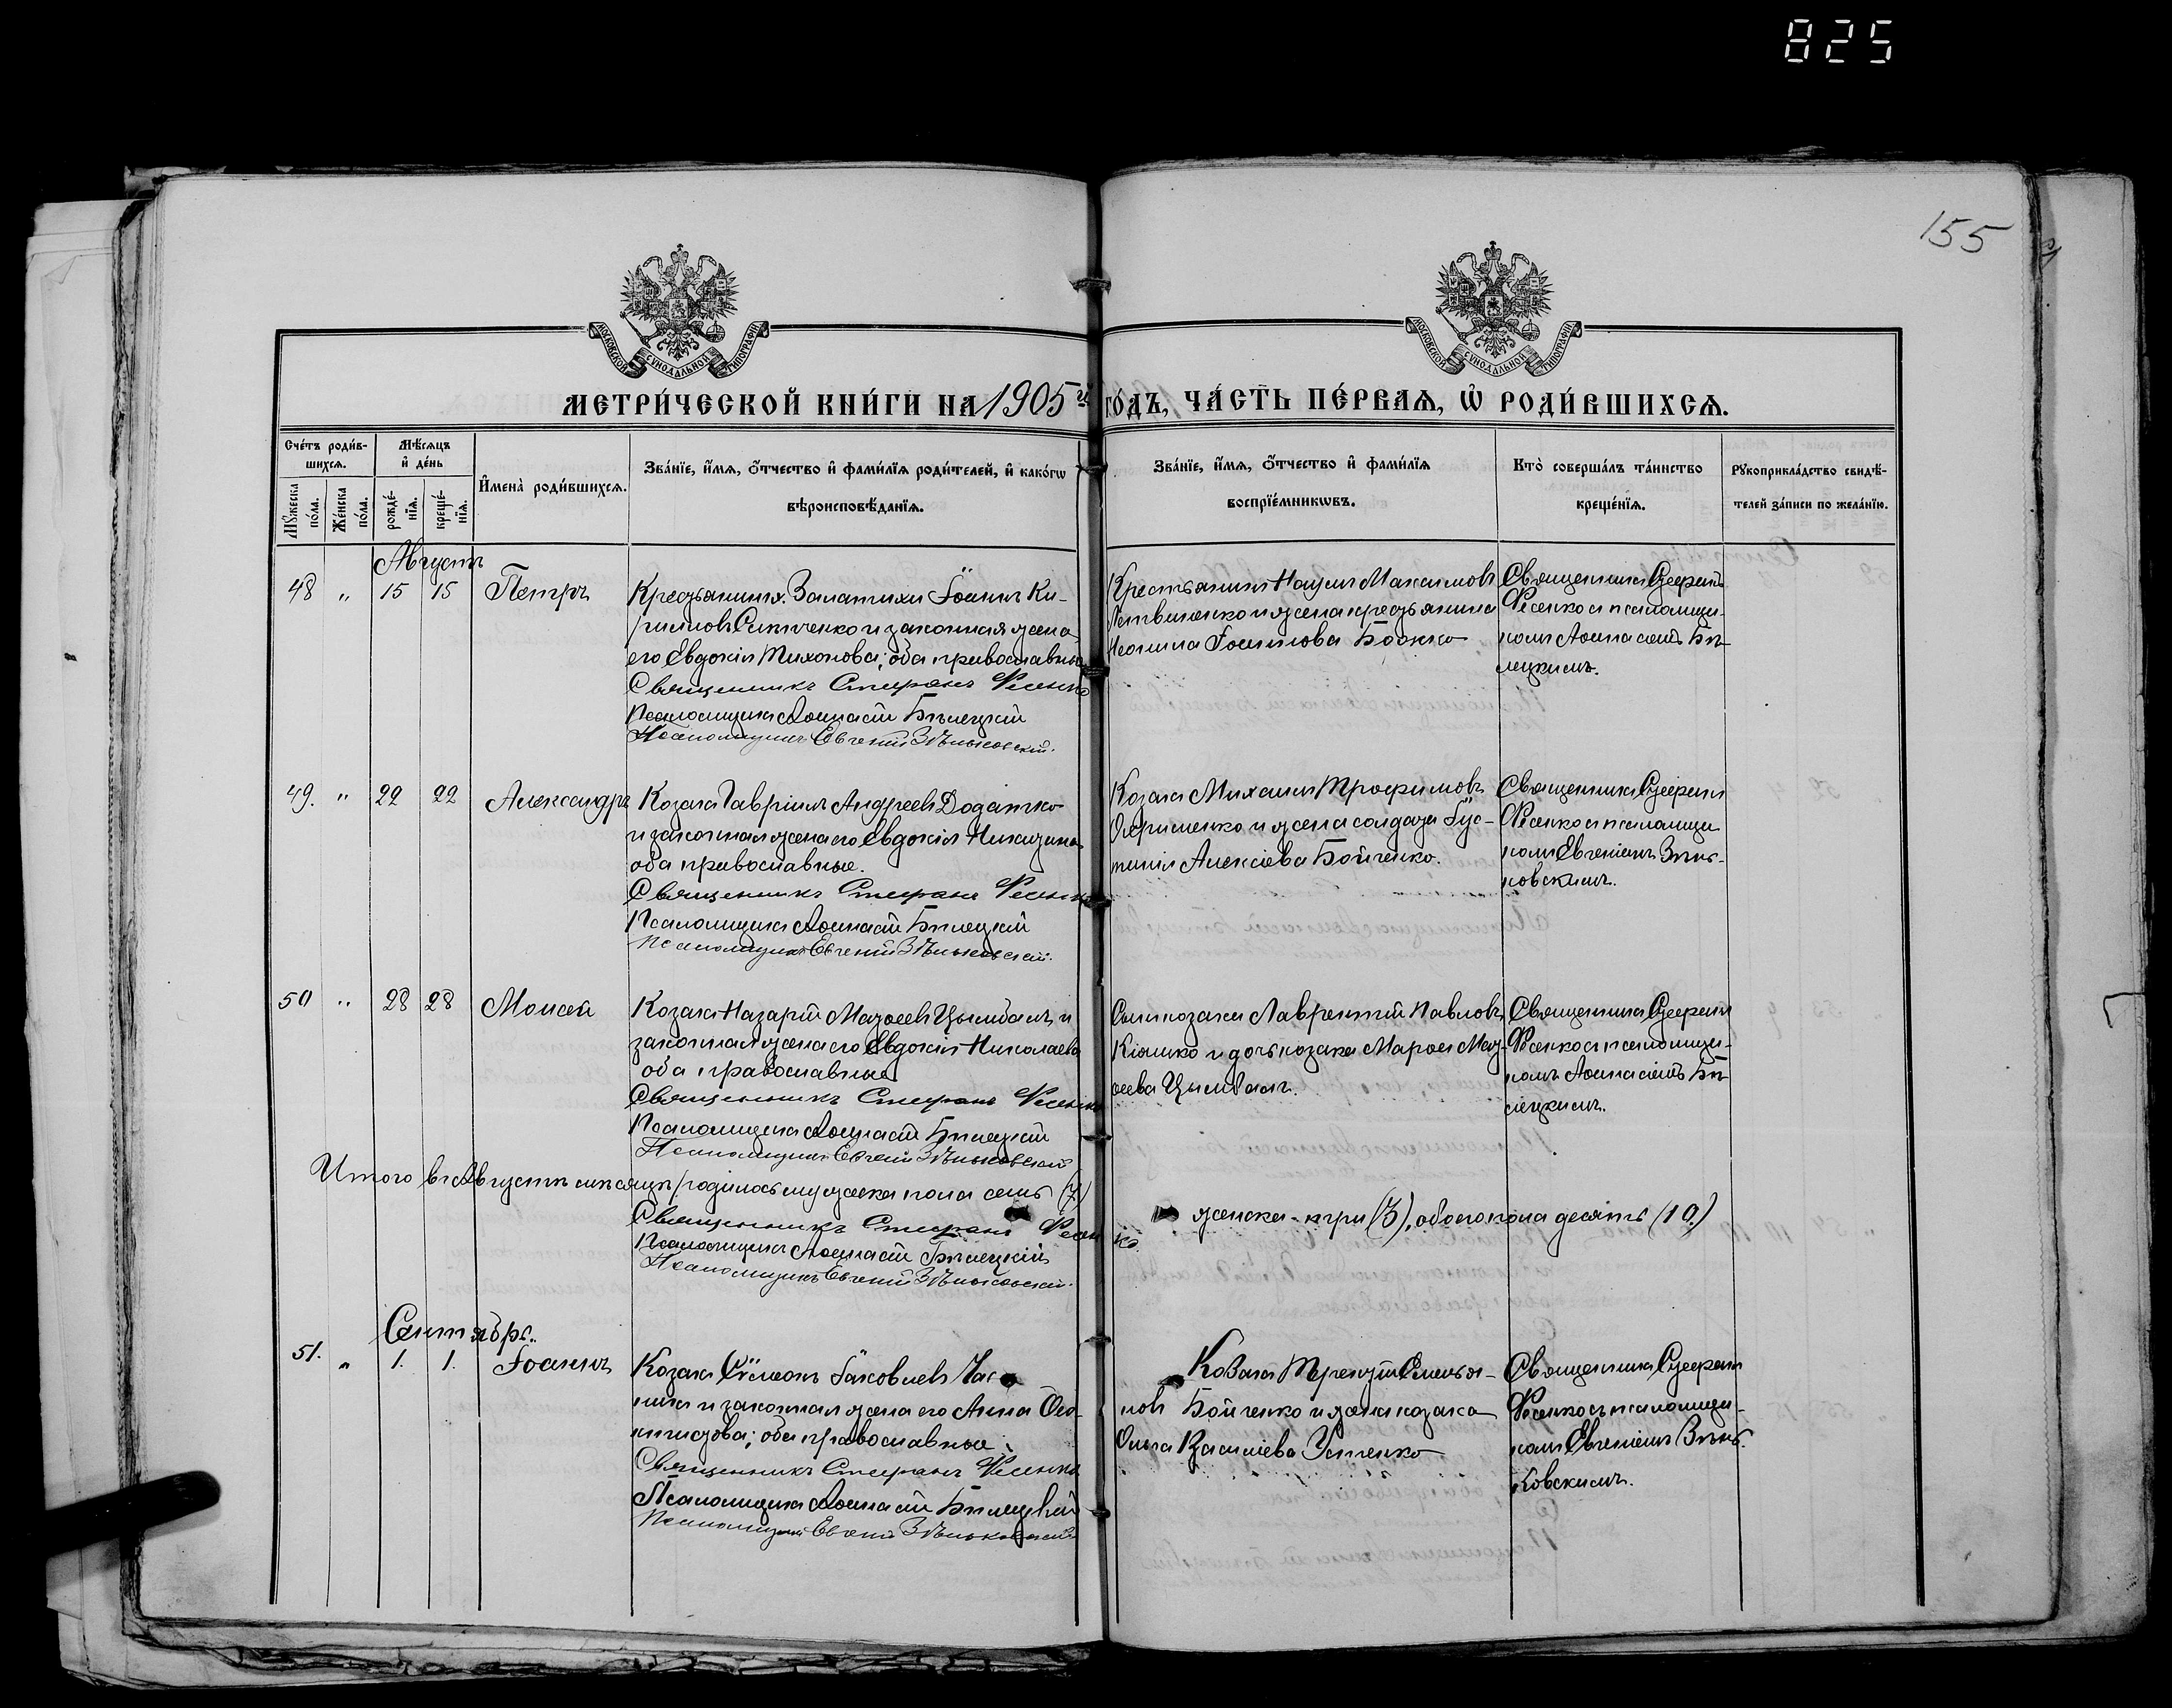 825
155
МОСКОВСКОЙ СУНОДАЛЬНОЙ ТИПОГРАФІИ
МОСКОВСКОЙ СУНОДАЛЬНОЙ ТИПОГРАФІИ
МЕТРИ́ЧЕСКОЙ КНИ́ГИ НА 1905й ГО́ДЪ, ЧА́СТЬ ПЕ́РВАѦ, Ѽ РОДИ́ВШИХСѦ.
Сче́тъ роди́в-
шихсѧ.
Мꙋ́жеска по́ла.
Же́нска по́ла.
Мѣ́сѧцъ
и҆ де́нь
рожде́-
нїѧ.
креще́-
нїѧ.
И҆мена̀ роди́вшихсѧ.
Зва́нїе, и҆́мѧ, ѻ҆́тчество и҆ фами́лїѧ роди́телей, и҆ како́гѡ
вѣроисповѣ́данїѧ.
Зва́нїе, и҆́мѧ, ѻ҆́тчество и҆ фами́лїѧ
воспрїе́мникѡвъ.
Кто̀ соверша́лъ та́инство
креще́нїѧ.
Рꙋкоприкла́дство свидѣ́-
телей за́писи по жела́нїю.
Августъ
48 „ 15 15 Петръ
Крестьянинъ Іоаннъ Ки-
рилловъ и законная жена
его Евдокія Тихонова; оба православные
Священникъ Стефанъ Фесенко
Псаломщикъ Аѳанасій Бѣлецкій
Псаломщикъ Евгеній Зѣньковскій.
Крестьянинъ Наумъ Максимовъ
Литвиненко и жена крестьянина
Іосифова Божко
Священникъ Стефанъ
Фесенко съ псаломщи-
комъ Аѳанасіемъ Бѣ-
лецкимъ.
49. „ 22 22 Александръ
Козакъ Гавріилъ Андреевъ Додатко
и законная жена его Евдокія Никитина
оба православные.
Священникъ Стефанъ Фесенко
Псаломщикъ Аѳанасій Бѣлецкій
Псаломщикъ Евгеній Зѣньковскій.
Козакъ Михаилъ Трофимовъ
Охрименко и жена солдата Іус-
тинія Алексіева Бойченко.
Священникъ Стефанъ
Фесенко съ псаломщи
комъ Евгеніемъ Зѣнь-
ковскимъ.
50 „ 28 28 Моисей
Козакъ Назарій Матѳеевъ Цымбалъ и
законная жена его Евдокія Николаева
оба православные
Священникъ Стефанъ Фесенко
Псаломщикъ Аѳанасій Бѣлецкій
Псаломщикъ Евгеній Зѣньковскій
Сынъ козака Лаврентій Павловъ
Кіяшко и дочь козака Марѳа Мат-
ѳеева Цымбалъ.
Священникъ Стефанъ
Фесенко съ псаломщи-
комъ Аѳанасіемъ Бѣ-
лецкимъ.
Итого въ Августѣ мѣсяцѣ родилось мужеска пола семь (7)
женска - три (3), обоего пола десять (10.)
Священникъ Стефанъ Фесенко
Псаломщикъ Аѳанасій Бѣлецкій
Псаломщикъ Евгеній Зѣньковскій.
Сентябрь.
51. „ 1. 1. Іоаннъ
Козакъ Сѵмеонъ Іаковлевъ
и законная жена его Анна Ѳео-
ктистова; оба православные.
Священникъ Стефанъ Фесенко
Псаломщикъ Аѳанасій Бѣлецкій
Псаломщикъ Евгеній Зѣньковскій
Козакъ Терентій Емелья-
новъ Бойченко и жена козака
Ольга Василіева Устенко
Священникъ Стефанъ
Фесенко съ псаломщи-
комъ Евгеніемъ Зѣнь-
ковскимъ.